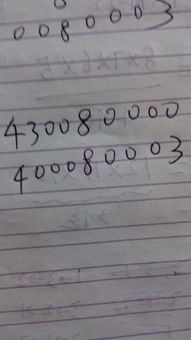 0080003
430080000
400080003